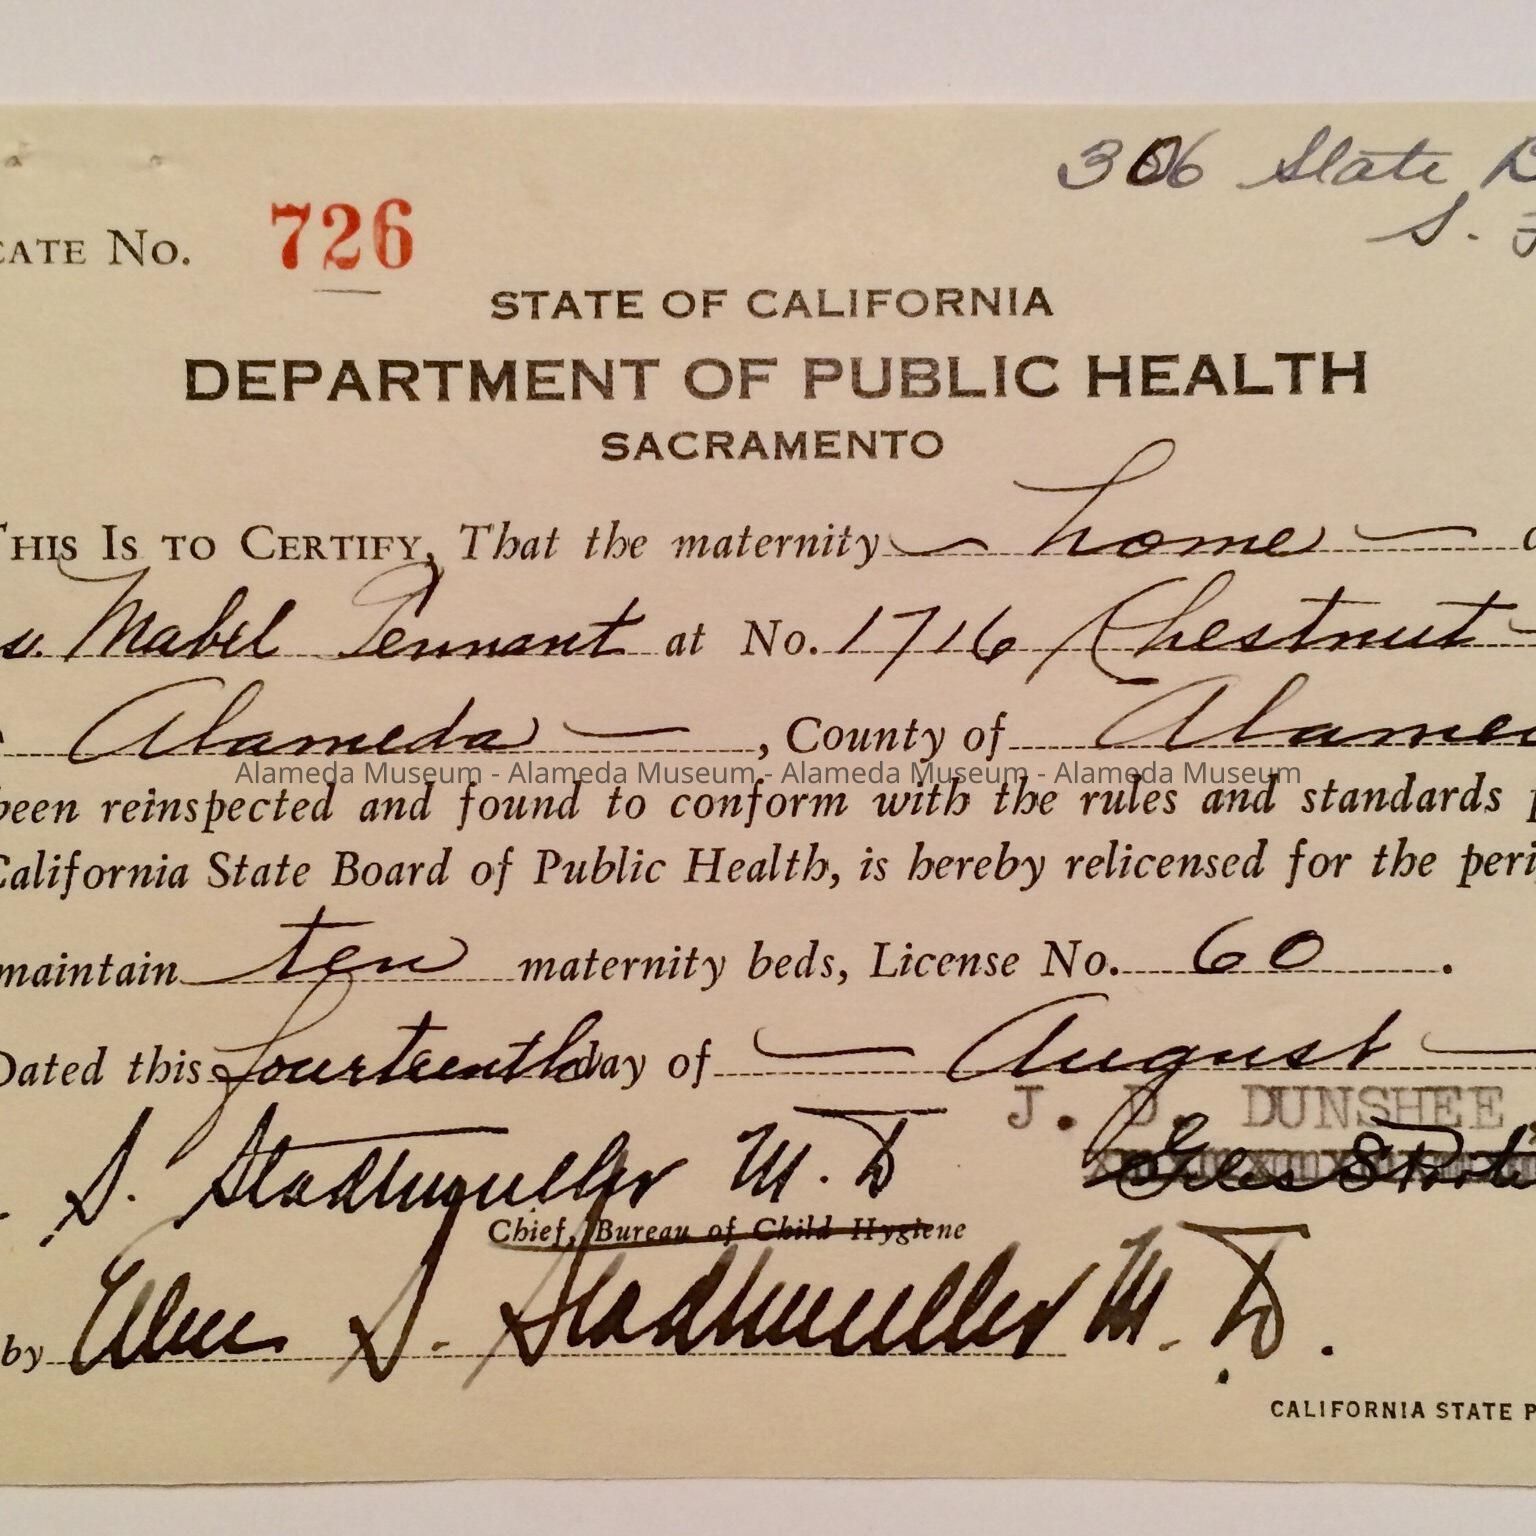 306 State
S.
CATE No. 726
STATE OF CALIFORNIA
DEPARTMENT OF PUBLIC HEALTH
SACRAMENTO
THIS IS TO CERTIFY, That the maternity home
Mabel Tennant at No. 1716 Chestnut
Alameda, County of Alamed
Alameda Museum - Alameda Museum - Alameda Museum - Alameda Museum
been reinspected and found to conform with the rules and standards p
California State Board of Public Health, is hereby relicensed for the peri
maintain ten maternity beds, License No. 60.
Dated this fourteenth day of August
J. D. DUNSHEE
S. Stadtmuller M.D
Chief, Bureau of Child Hygiene
by Ellen S. Stadtmuller M.D.
CALIFORNIA STATE P